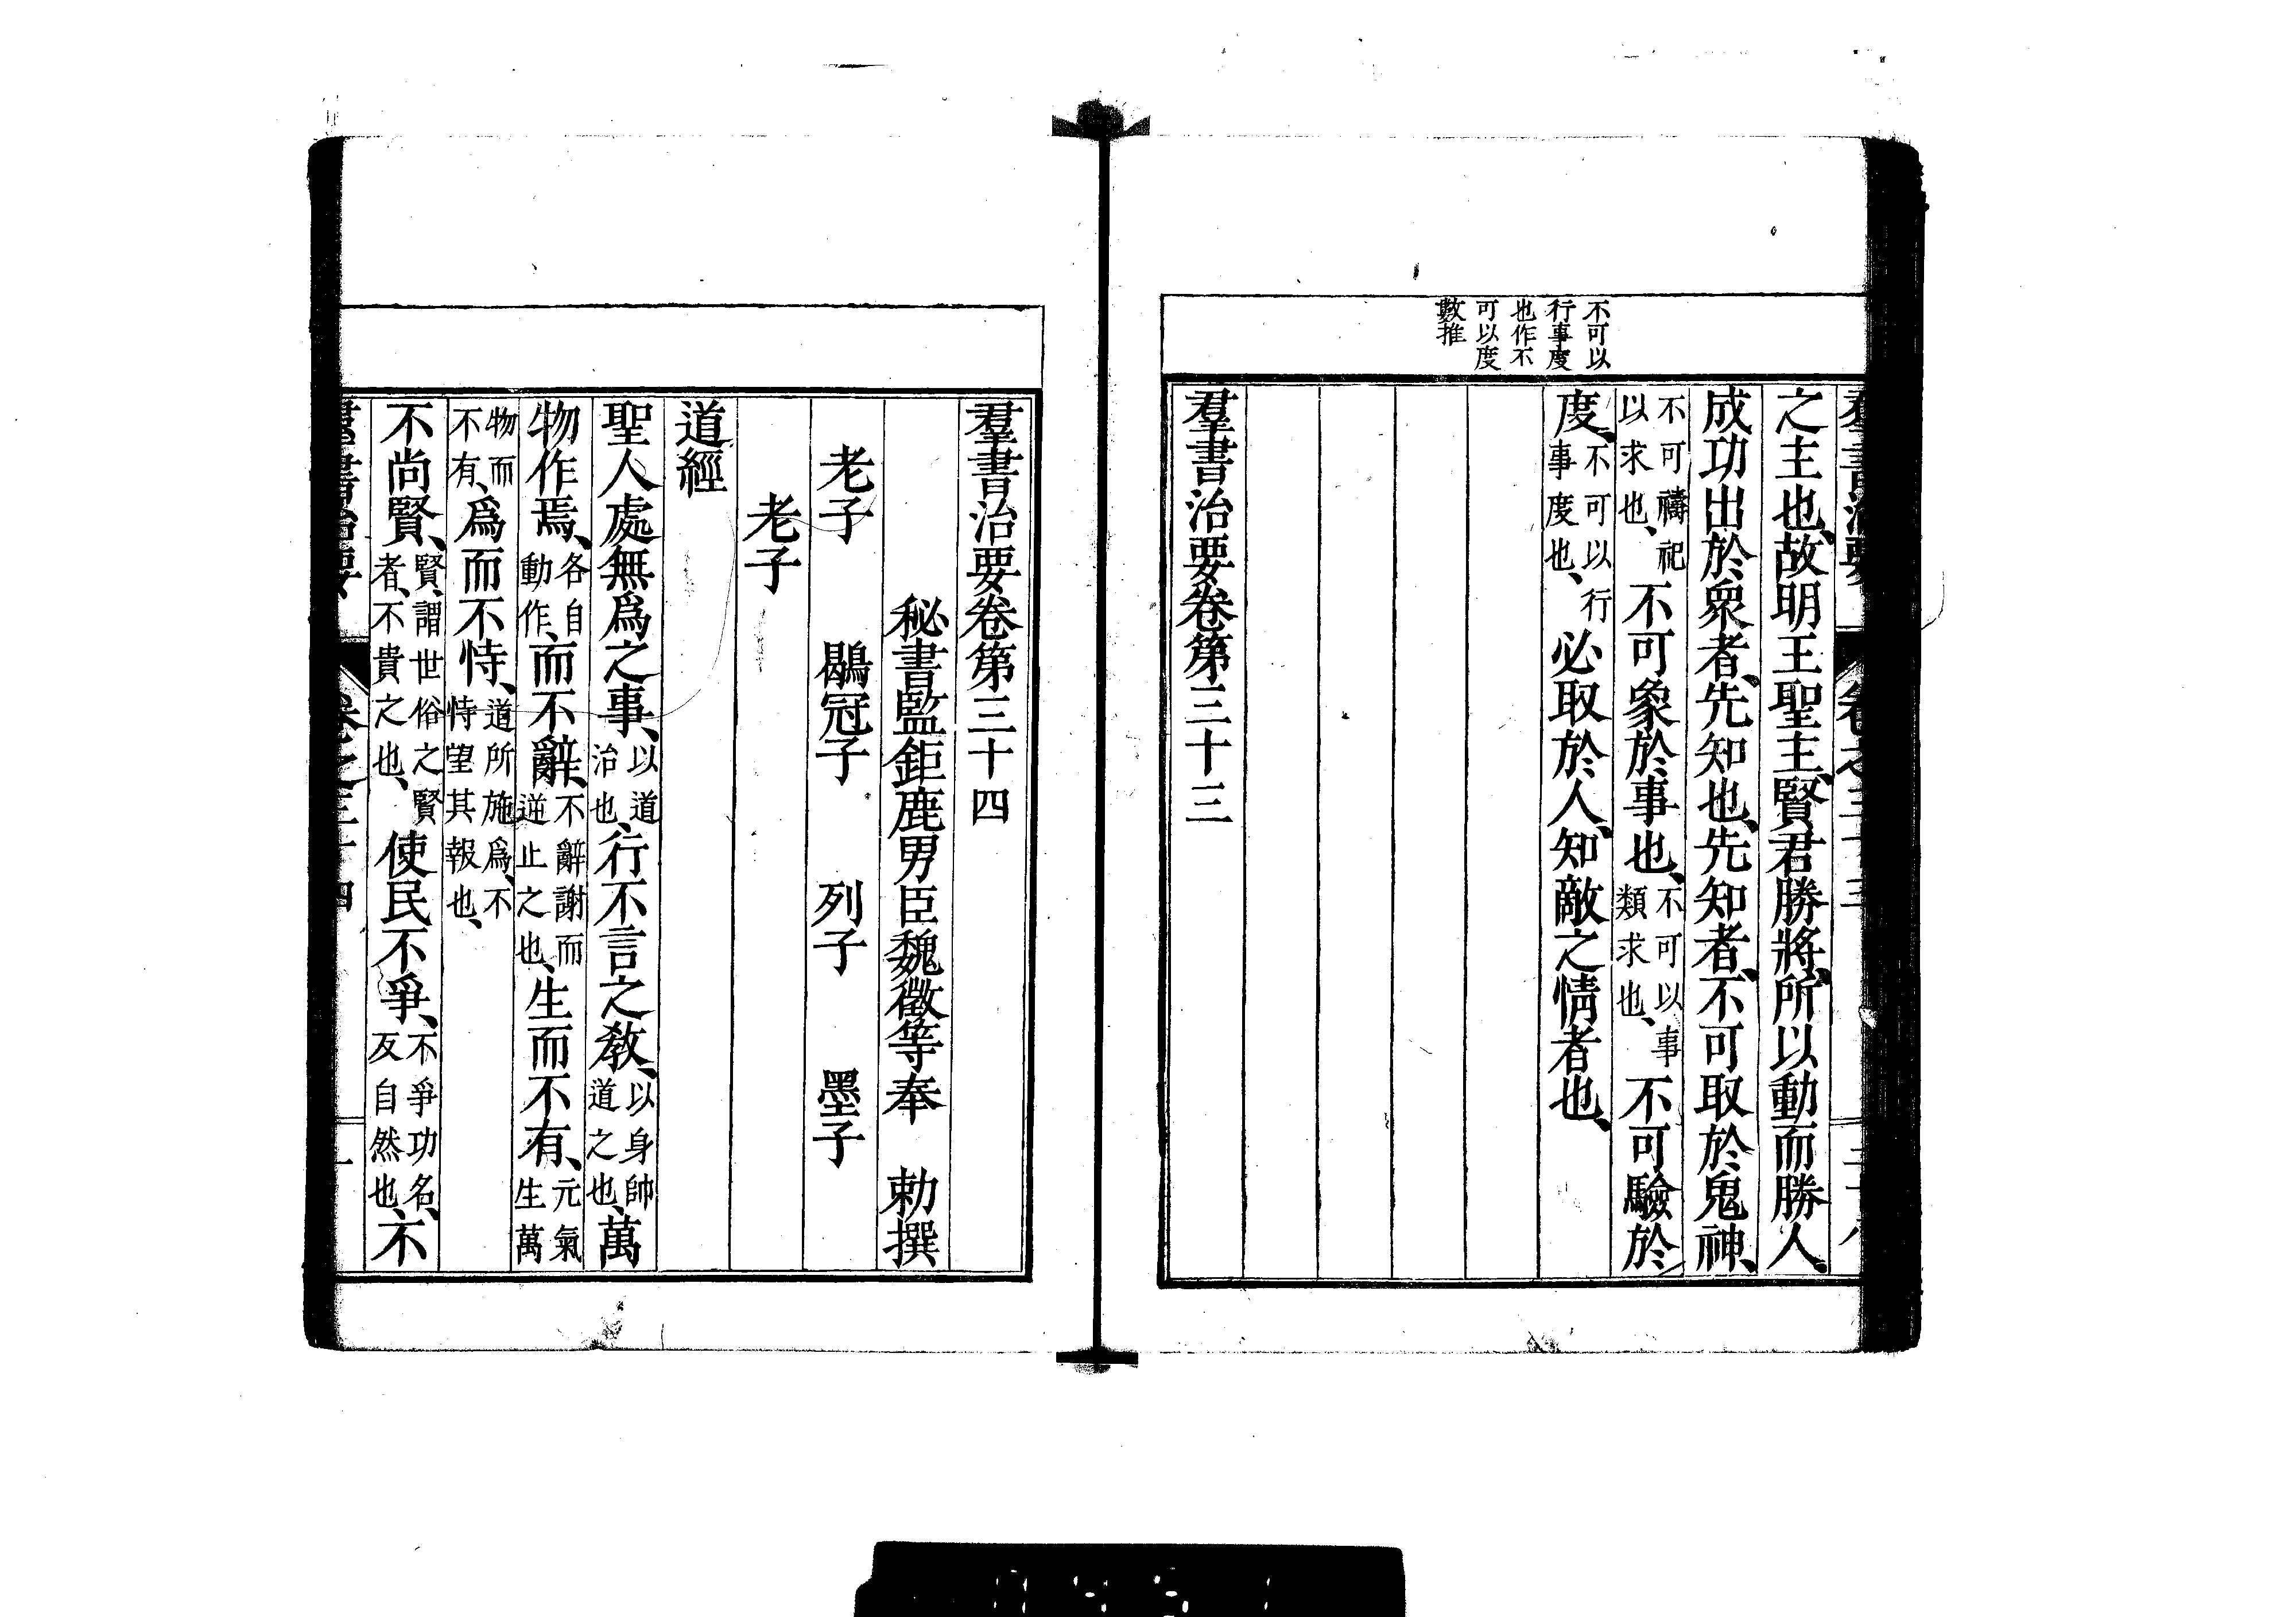 不可以
行事度
也作不
可以度
數推
之主也、故明王聖主、賢君勝將、所以動而勝人、
成功出於衆者、先知也、先知者、不可取於鬼神、
不可禱祀以求也、不可象於事也、不可以事類求也、不可驗於
度、不可以行事度也、必取於人、知敵之情者也、
羣書治要卷第三十三
羣書治要卷第三十四
秘書監鉅鹿男臣魏徵等奉 勅撰
老子 鶡冠子 列子 墨子
老子
道經
聖人處無爲之事、以道治也、行不言之教、以身帥道之也、萬
物作焉、各自動作、而不辭、不辭謝而逆止之也、生而不有、元氣生萬
物而不有、爲而不恃、道所施爲、不恃望其報也、
不尚賢、賢、謂世俗之賢者、不貴之也、使民不爭、不爭功名、反自然也、不